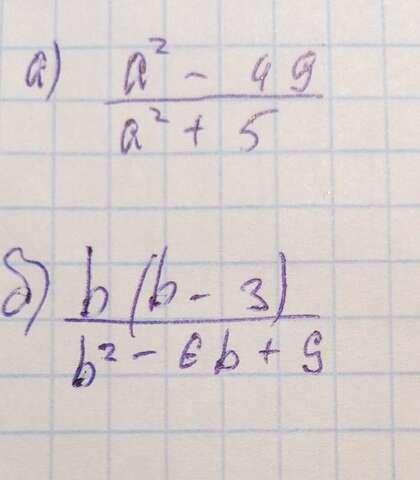 а) a² - 49
a² + 5
б) b(b - 3)
b² - 6b + 9